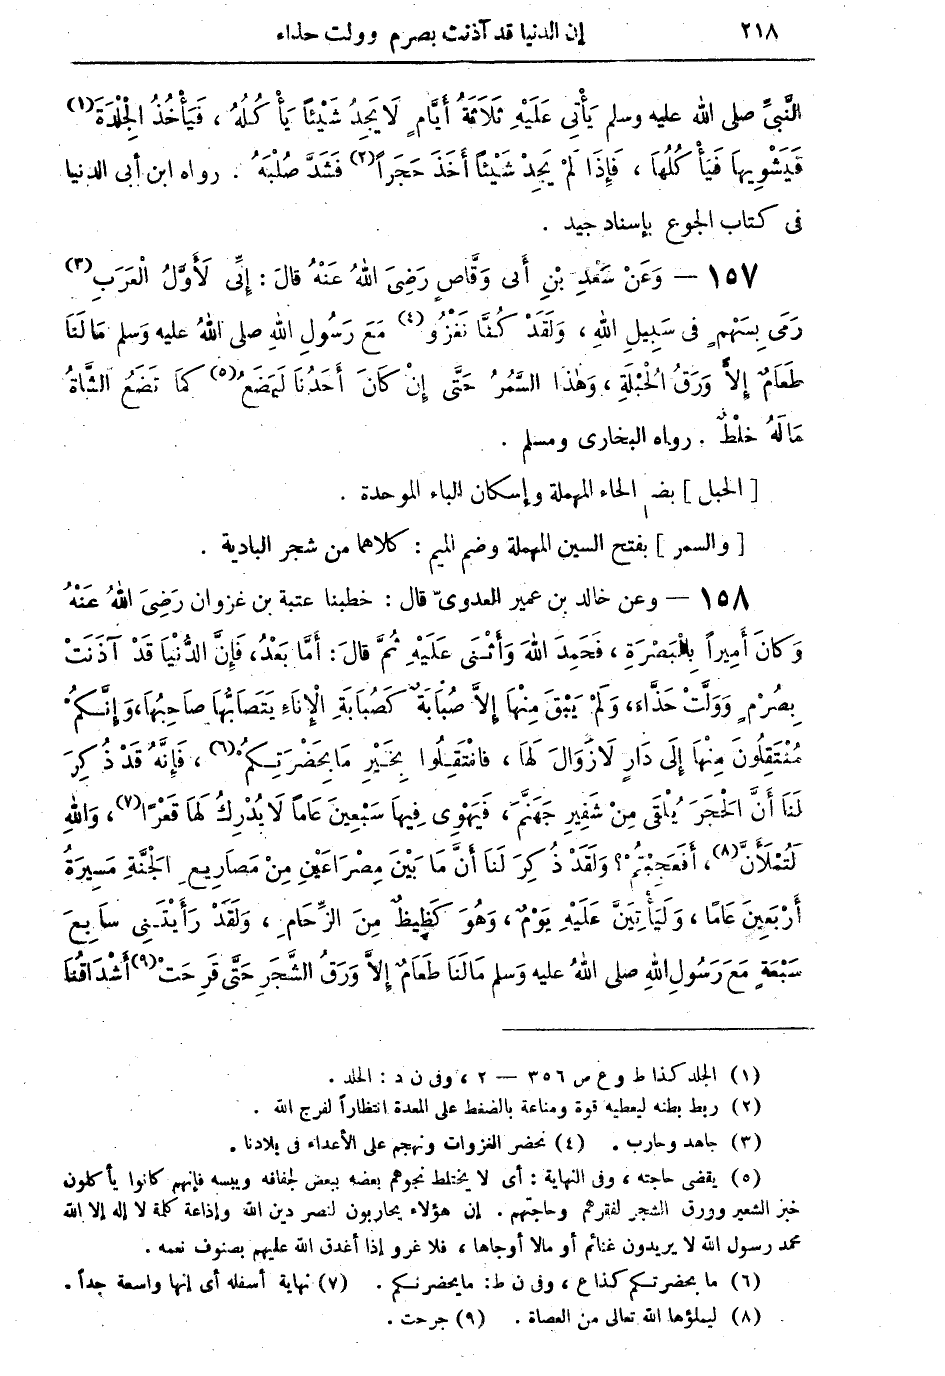 ٢١٨ إن الدنيا قد آذنت بصرم وولت حذاء
النَّبِيِّ صلى الله عليه وسلم يَأْتِى عَلَيْهِ ثَلَاثَةُ أَيَّامٍ لَا يَجِدُ شَيْئاً يَأْكُلُهُ ، فَيَأْخُذُ الْجِلْدَةَ(١)
فَيَشْوِيهَا فَيَأْكُلُهَا ، فَإِذَا لَمْ يَجِدْ شَيْئاً أَخَذَ حَجَراً(٢) فَشَدَّ صُلْبَهُ . رواه ابن أبى الدنيا
فى كتاب الجوع بإسناد جيد .
١٥٧ — وَعَنْ سَعْدِ بْنِ أَبى وَقَّاصٍ رَضِىَ اللهُ عَنْهُ قالَ : إِنِّى لَأَوَّلُ الْعَرَبِ(٣)
رَمَى بِسَهْمٍ فى سَبِيلِ اللهِ ، وَلَقَدْ كُنَّا نَغْزُو(٤) مَعَ رَسُولِ اللهِ صلى اللهُ عليه وَسلم مَالَنَا
طَعَامٌ إِلاَّ وَرَقُ الْحُبْلَةِ ، وَهٰذَا السَّمُرُ حَتَّى إِنْ كَانَ أَحَدُنَا لَيَضَعُ(٥) كَمَا تَضَعُ الشَّاةُ
مَالَهُ خَلْطٌ . رواه البخارى ومسلم .
[ الحبل ] بضم الحاء المهملة وإسكان الباء الموحدة .
[ والسمر ] بفتح السين المهملة وضم الميم : كلاهما من شجر البادية .
١٥٨ — وعن خالد بن عمير العدوىّ قال : خطبنا عتبة بن غزوان رَضِىَ اللهُ عَنْهُ
وَكَانَ أَمِيراً بِالْبَصْرَةِ ، فَحَمِدَ اللهَ وَأَثْنَى عَلَيْهِ ثُمَّ قالَ : أَمَّا بَعْدُ ، فَإِنَّ الدُّنْيَا قَدْ آذَنَتْ
بِصُرْمٍ وَوَلَّتْ حَذَّاءَ، وَلَمْ يَبْقَ مِنْهَا إِلاَّ صُبَابَةٌ كَصُبَابَةِ الْإِنَاءِ يَتَصَابُّهَا صَاحِبُهَا، وَإِنَّكُمْ
مُنْتَقِلُونَ مِنْهَا إِلَى دَارٍ لَازَوَالَ لَهَا ، فانْتَقِلُوا بِخَيْرِ مَا بِحَضْرَتِكُمْ(٦) ، فَإِنَّهُ قَدْ ذُكِرَ
لَنَا أَنَّ الْحَجَرَ يُلْقَى مِنْ شَفِيرِ جَهَنَّمَ ، فَيَهْوِى فِيهَا سَبْعِينَ عَاماً لَا يُدْرِكُ لَهَا قَعْرًا(٧) ، وَاللهِ
لَتُمْلَأَنَّ(٨) ، أَفَعَجِبْتُمْ ؟ وَلَقَدْ ذُكِرَ لَنَا أَنَّ مَا بَيْنَ مِصْرَاعَيْنِ مِنْ مَصَارِيعِ الْجَنَّةِ مَسِيرَةُ
أَرْبَعِينَ عَامًا ، وَلَيَأْتِيَنَّ عَلَيْهِ يَوْمٌ ، وَهُوَ كَظِيظٌ مِنَ الزِّحَامِ ، وَلَقَدْ رَأَيْتُنِى سَابِعَ
سَبْعَةٍ مَعَ رَسُولِ اللهِ صلى اللهُ عليه وَسلم مَالَنَا طَعَامٌ إِلاَّ وَرَقُ الشَّجَرِ حَتَّى قَرِحَتْ(٩) أَشْدَاقُنَا
(١) الجلد كذا ط و ع ص ٣٥٦ — ٢ ، وفى ن د : الجلد .
(٢) ربط بطنه ليعطيه قوة ومناعة بالضغط على المعدة انتظاراً لفرج الله .
(٣) جاهد وحارب . (٤) نحضر الغزوات ونهجم على الأعداء فى بلادنا .
(٥) يقضى حاجته ، وفى النهاية : أى لا يختلط نجوهم بعضه ببعض لجفافه ويبسه فإنهم كانوا يأكلون
خبز الشعير وورق الشجر لفقرهم وحاجتهم . إن هؤلاء يحاربون لنصر دين الله وإذاعة كلمة لا إله إلا الله
محمد رسول الله لا يريدون غنائم أو مالا أوجاها ، فلا غرو إذا أغدق الله عليهم بصنوف نعمه .
(٦) ما بحضرتكم كذا ع ، وفى ن ط : مايحضرنكم . (٧) نهاية أسفله أى إنها واسعة جداً .
(٨) ليملؤها الله تعالى من العصاة . (٩) جرحت .